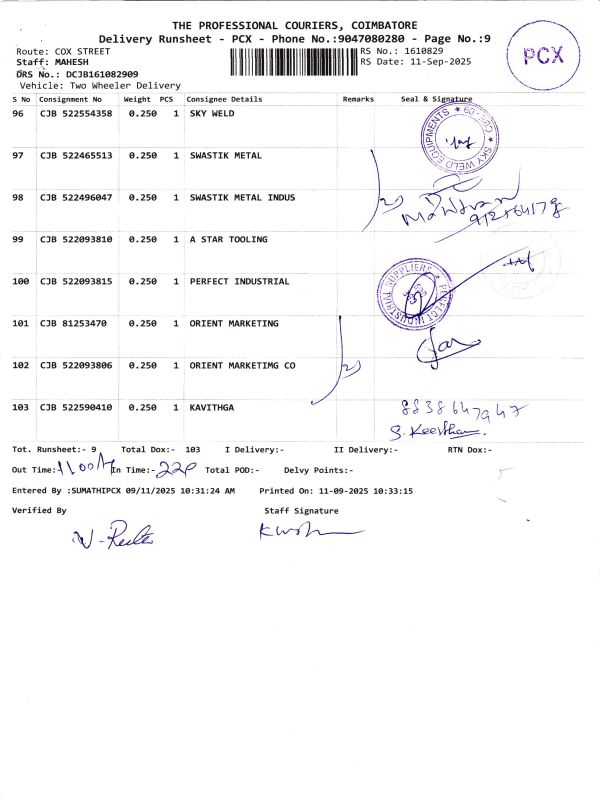 THE PROFESSIONAL COURIERS, COIMBATORE
Delivery Runsheet - PCX - Phone No.:9047080280 - Page No.:9
Route: COX STREET RS No.: 1610829
Staff: MAHESH RS Date: 11-Sep-2025
DRS No.: DCJB161082909
Vehicle: Two Wheeler Delivery
PCX
S No Consignment No Weight PCS Consignee Details Remarks Seal & Signature
96 CJB 522554358 0.250 1 SKY WELD
SKY WELD EQUIPMENTS
97 CJB 522465513 0.250 1 SWASTIK METAL
98 CJB 522496047 0.250 1 SWASTIK METAL INDUS
99 CJB 522093810 0.250 1 A STAR TOOLING
100 CJB 522093815 0.250 1 PERFECT INDUSTRIAL
PERFECT INDUSTRIAL SUPPLIERS
101 CJB 81253470 0.250 1 ORIENT MARKETING
102 CJB 522093806 0.250 1 ORIENT MARKETIMG CO
103 CJB 522590410 0.250 1 KAVITHGA 8838647947
S. Keerthan.
Tot. Runsheet:- 9 Total Dox:- 103 I Delivery:- II Delivery:- RTN Dox:-
Out Time: In Time:- 220 Total POD:- Delvy Points:-
Entered By :SUMATHIPCX 09/11/2025 10:31:24 AM Printed On: 11-09-2025 10:33:15
Verified By Staff Signature